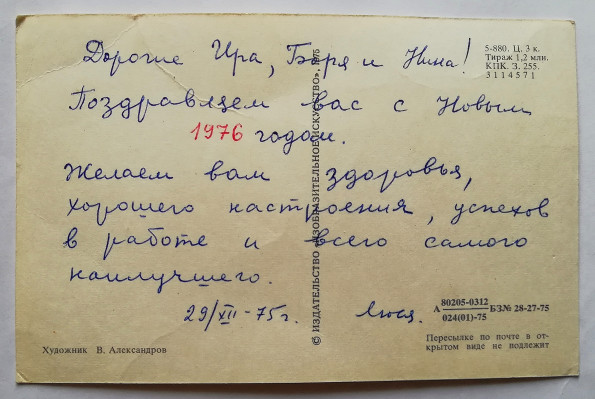 Дорогие Ира, Боря и Нина!
Поздравляем вас с Новым
1976 годом.
Желаем вам здоровья,
хорошего настроения, успехов
в работе и всего самого
наилучшего.
29/XII-75г. Люся.
5-880. Ц. 3 к.
Тираж 1,2 млн.
КПК. З. 255.
3114571
© ИЗДАТЕЛЬСТВО «ИЗОБРАЗИТЕЛЬНОЕ ИСКУССТВО», 1975
А 80205-0312 БЗ№ 28-27-75
024(01)-75
Художник В. Александров
Пересылке по почте в от-
крытом виде не подлежит